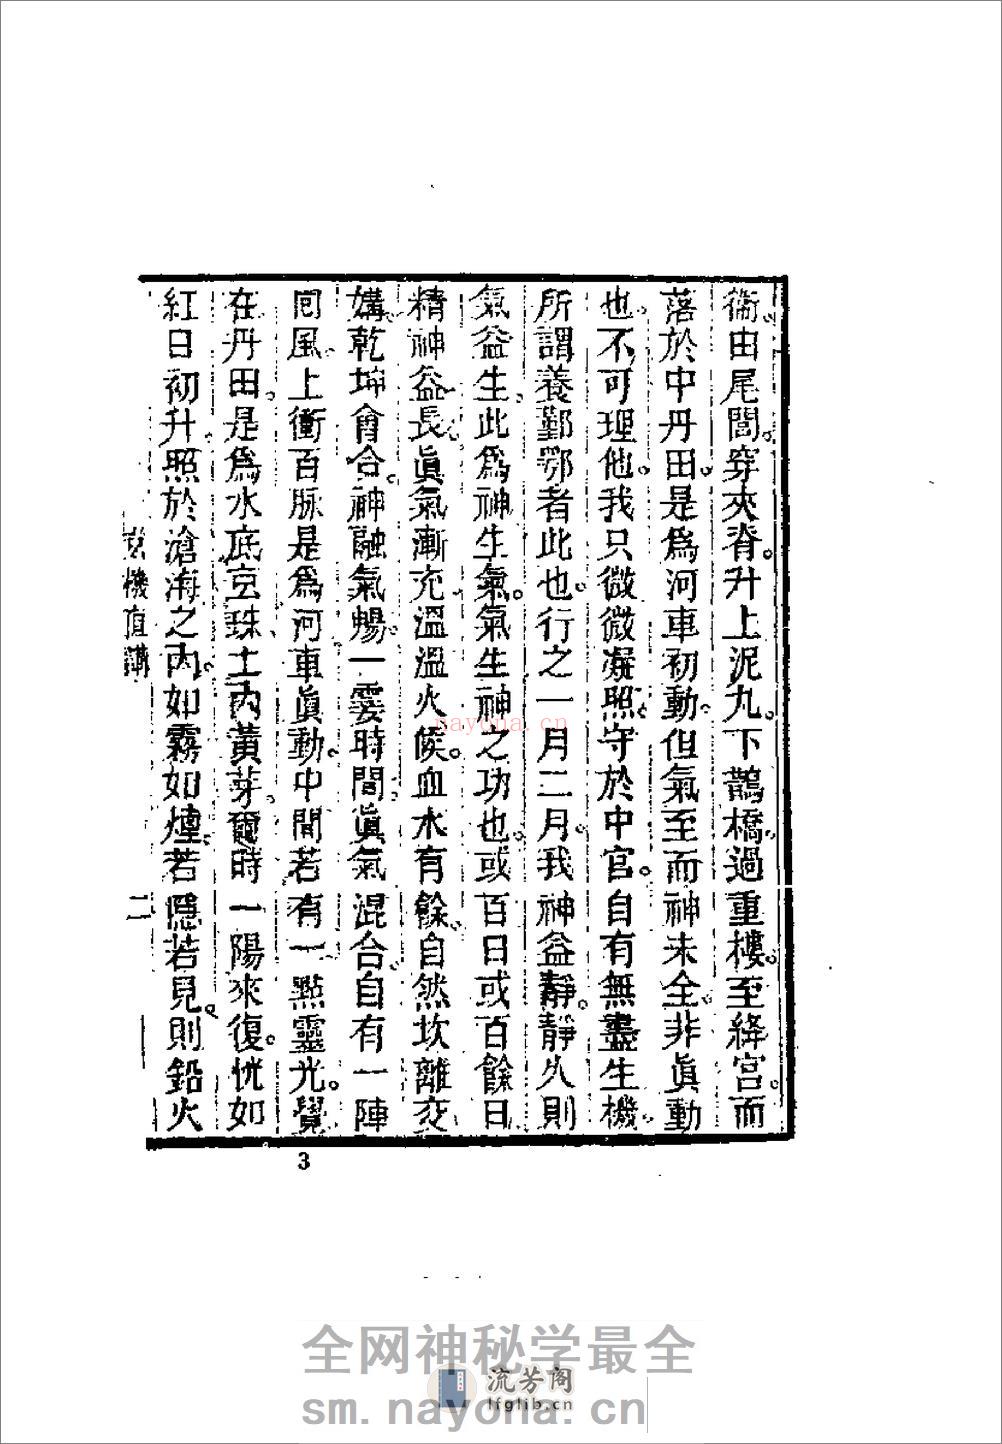 衝由尾閭。穿夾脊。升上泥丸。下鵲橋。過重樓。至絳宮。而
落於中丹田。是爲河車初動。但氣至而神未全。非眞動
也。不可理他。我只微微凝照。守於中宮。自有無盡生機。
所謂養鄞鄂者此也。行之一月二月。我神益靜。靜久則
氣益生。此爲神生氣。氣生神之功也。或百日或百餘日。
精神益長。眞氣漸充。溫溫火候。血水有餘。自然坎離交
媾。乾坤會合。神融氣暢。一霎時間。眞氣混合。自有一陣
回風上衝百脉。是爲河車眞動。中間若有一點靈光。覺
在丹田。是爲水底玄珠。土內黃芽。爾時一陽來復。恍如
紅日初升。照於滄海之內。如霧如煙。若隱若見。則鉛火
玄機直講
二
3
nayona.cn
全网神秘学最全
流芳阁
lfglib.cn
sm.nayona.cn